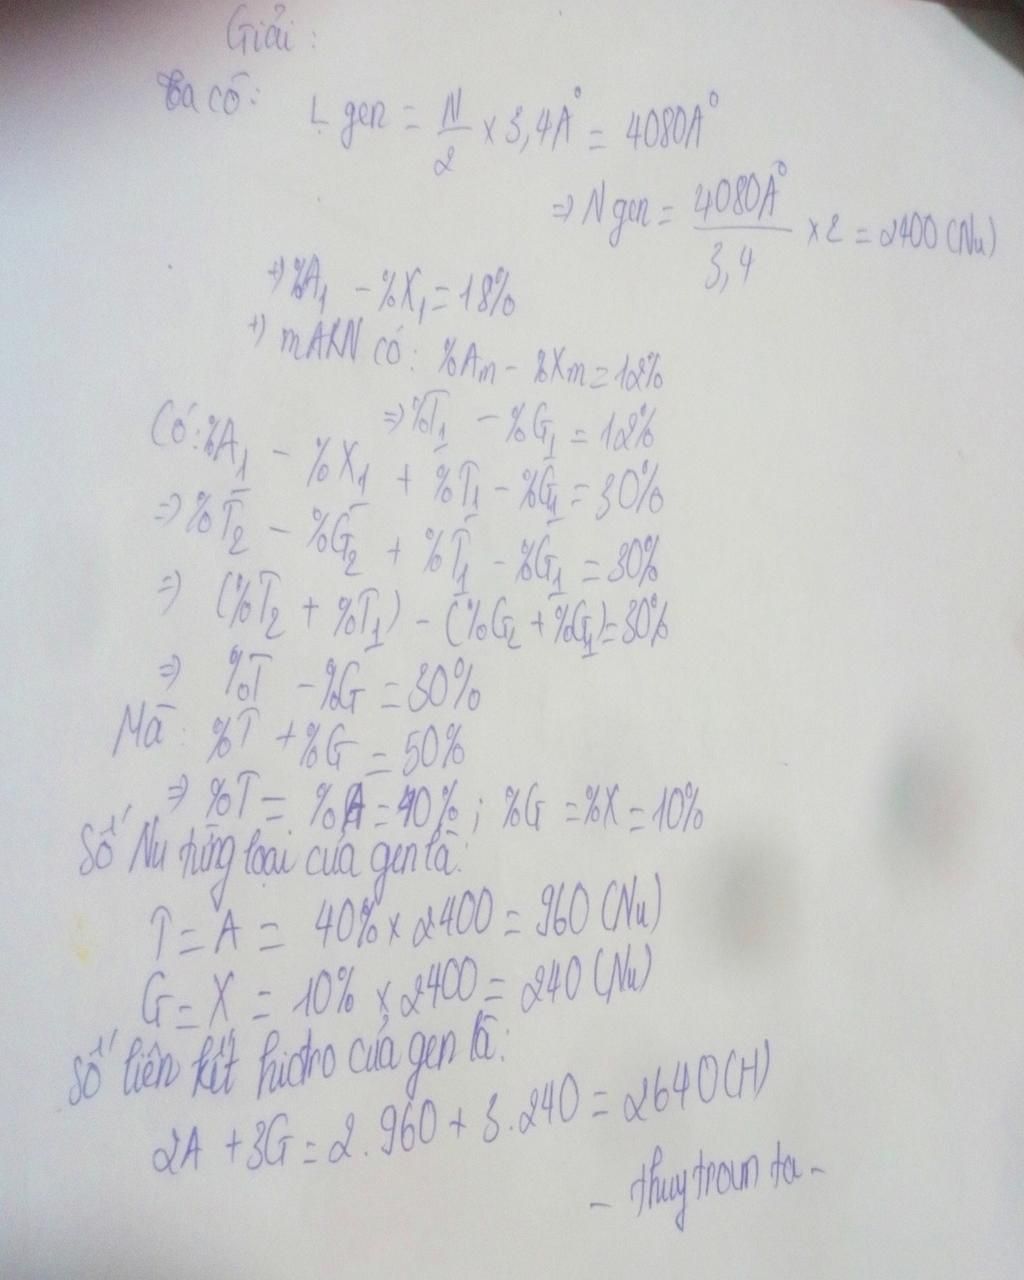 Giải :
Ta có : L gen = N/2 × 3,4A° = 4080A°
=> N gen = 4080A°/3,4 × 2 = 2400 (Nu)
+) %A₁ - %X₁ = 18%
+) mARN có : %Am - %Xm = 12%
=> %T₁ - %G₁ = 12%
Có : %A₁ - %X₁ + %T₁ - %G₁ = 30%
=> %T₂ - %G₂ + %T₁ - %G₁ = 30%
=> (%T₂ + %T₁) - (%G₂ + %G₁) = 30%
=> %T - %G = 30%
Mà : %T + %G = 50%
=> %T = %A = 40% ; %G = %X = 10%
Số Nu từng loại của gen là :
T = A = 40% × 2400 = 960 (Nu)
G = X = 10% × 2400 = 240 (Nu)
Số liên kết hidro của gen là :
2A + 3G = 2.960 + 3.240 = 2640 (H)
- thuytramta -